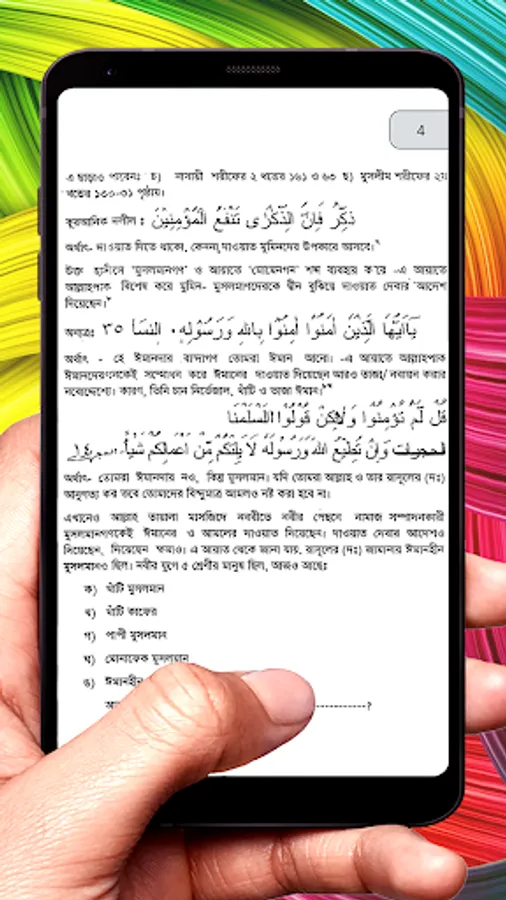 4
এ ছাড়াও পাবেনঃ চ) নাসায়ী শরীফের ২ খন্ডের ১৬১ ও ৬৩ ছ) মুসলীম শরীফের ২য়
খন্ডের ১৩০-৩১ পৃষ্ঠায়।
কুরআনিক দলীল : ذَكِّرْ فَاِنَّ الذِّكْرٰى تَنْفَعُ الْمُؤْمِنِيْنَ
অর্থাৎ- দাওয়াত দিতে থাকো, কেননা দাওয়াত মুমিনদের উপকারে আসবে।
উক্ত হাদীসে 'মুসলমানগণ' ও আয়াতে 'মোমেনগন' শব্দ ব্যবহার করে -এ আয়াতে
আল্লাহপাক বিশেষ করে মুমিন- মুসলমানদেরকে দ্বীন বুঝিয়ে দাওয়াত দেবার আদেশ
দিয়েছেন।
অন্যত্রঃ يٰاَيُّهَا الَّذِيْنَ اٰمَنُوْا اٰمِنُوْا بِاللهِ وَرَسُوْلِهٖ. النسأ ٣٥
অর্থাৎ - হে ঈমানদার বান্দাগণ তোমরা ঈমান আনো। -এ আয়াতে আল্লাহপাক
ঈমানদেরগনকেই সম্মোধন করে ঈমানের দাওয়াত দিয়েছেন আরও তাজা/ নবায়ন করার
নবোদ্দেশ্যে। কারণ, তিনি চান নির্ভেজাল, খাঁটি ও তাজা ঈমান।
قُلْ لَمْ تُؤْمِنُوْا وَلٰكِنْ قُوْلُوْا اَسْلَمْنَا
الحجيات وَاِنْ تُطِيْعُ اللهَ وَرَسُوْلَهٗ لَا يَلِتْكُمْ مِّنْ اَعْمَالِكُمْ شَيْأً
অর্থাৎ- তোমরা ঈমানদার নও, কিন্তু মুসলমান। যদি তোমরা আল্লাহ ও তার রাসূলের (দঃ)
আনুগত্য কর তবে তোমাদের বিন্দুমাত্র আমলও নষ্ট করা হবে না।
এখানেও আল্লাহ তায়ালা মাসজিদে নববীতে নবীর পেছনে নামাজ সম্পাদনকারী
মুসলমানগণকেই ঈমানের ও আমলের দাওয়াত দিয়েছেন। দাওয়াত দেবার আদেশও
দিয়েছেন, দিয়েছেন ক্ষমতাও। এ আয়াত থেকে জানা যায়, রাসূলের (দঃ) জামানায় ঈমানহীন
মুসলমানও ছিল। নবীর যুগে ৫ শ্রেণীর মানুষ ছিল, আজও আছেঃ
ক) খাঁটি মুসলমান
খ) খাঁটি কাফের
গ) পাপী মুসলমান
ঘ) মোনাফেক মুসলমান
ঙ) ঈমানহীন
------------?